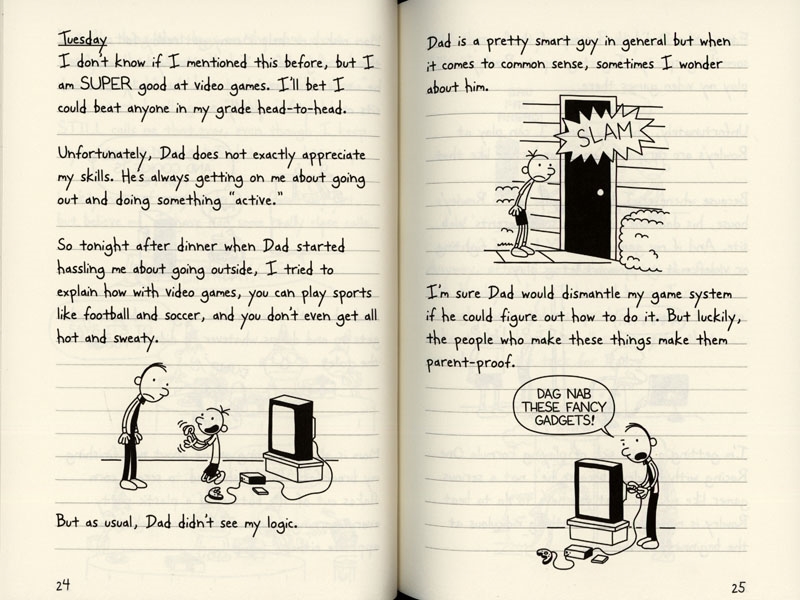 Tuesday
I don't know if I mentioned this before, but I
am SUPER good at video games. I'll bet I
could beat anyone in my grade head-to-head.
Unfortunately, Dad does not exactly appreciate
my skills. He's always getting on me about going
out and doing something "active."
So tonight after dinner when Dad started
hassling me about going outside, I tried to
explain how with video games, you can play sports
like football and soccer, and you don't even get all
hot and sweaty.
But as usual, Dad didn't see my logic.
24
Dad is a pretty smart guy in general but when
it comes to common sense, sometimes I wonder
about him.
SLAM
I'm sure Dad would dismantle my game system
if he could figure out how to do it. But luckily,
the people who make these things make them
parent-proof.
DAG NAB
THESE FANCY
GADGETS!
25